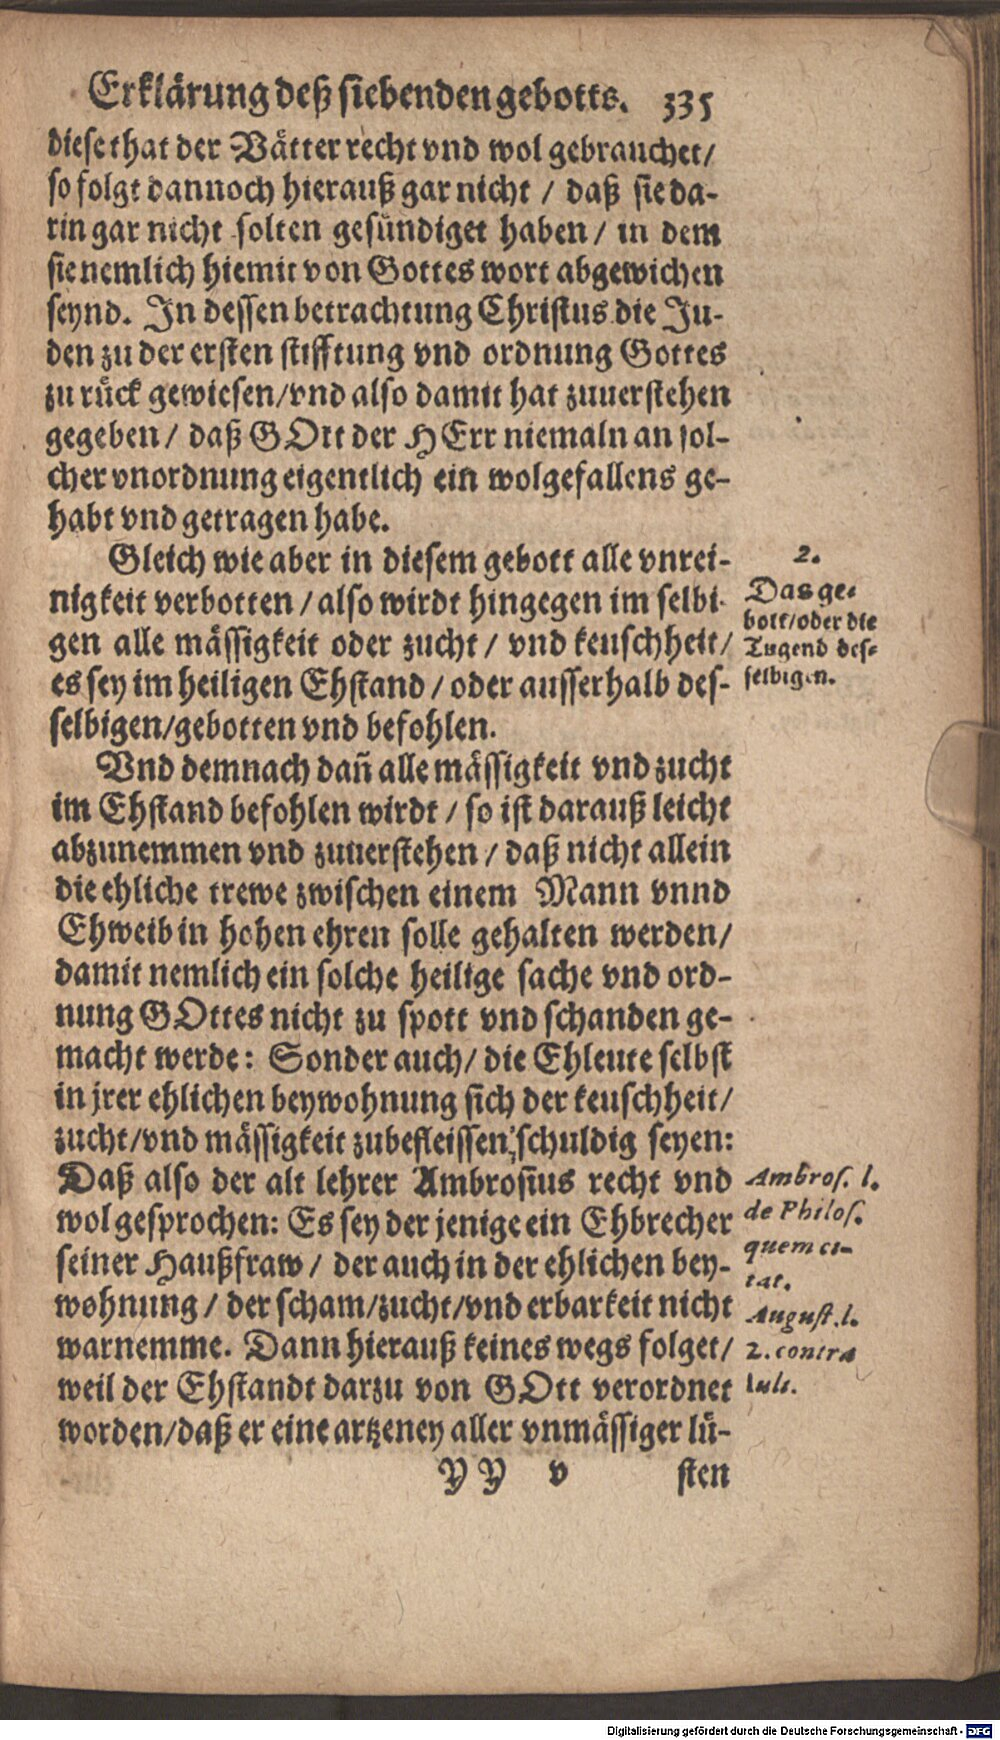 Erklärung deß siebenden gebotts. 335
diese that der Vätter recht vnd wol gebrauchet/
so folgt dannoch hierauß gar nicht / daß sie da-
rin gar nicht solten gesündiget haben / in dem
sie nemlich hiemit von Gottes wort abgewichen
seynd. In dessen betrachtung Christus die Ju-
den zu der ersten stifftung vnd ordnung Gottes
zu rück gewiesen/vnd also damit hat zuuerstehen
gegeben / daß GOtt der HErr niemaln an sol-
cher vnordnung eigentlich ein wolgefallens ge-
habt vnd getragen habe.
Gleich wie aber in diesem gebott alle vnrei-
nigkeit verbotten / also wirdt hingegen im selbi-
gen alle mässigkeit oder zucht / vnd keuschheit/
es sey im heiligen Ehstand / oder ausserhalb des-
selbigen/gebotten vnd befohlen.
2.
Das ge-
bott/oder die
Tugend des-
selbigen.
Vnd demnach dañ alle mässigkeit vnd zucht
im Ehstand befohlen wirdt / so ist darauß leicht
abzunemmen vnd zuuerstehen / daß nicht allein
die ehliche trewe zwischen einem Mann vnnd
Ehweib in hohen ehren solle gehalten werden/
damit nemlich ein solche heilige sache vnd ord-
nung GOttes nicht zu spott vnd schanden ge-
macht werde: Sonder auch/ die Ehleute selbst
in jrer ehlichen beywohnung sich der keuschheit/
zucht/vnd mässigkeit zubefleissen, schuldig seyen:
Daß also der alt lehrer Ambrosius recht vnd
wol gesprochen: Es sey der jenige ein Ehbrecher
seiner Haußfraw / der auch in der ehlichen bey-
wohnung / der scham/zucht/vnd erbarkeit nicht
warnemme. Dann hierauß keines wegs folget/
weil der Ehstandt darzu von GOtt verordnet
worden/daß er eine artzeney aller vnmässiger lü-
Ambros. l.
de Philos.
quem ci-
tat.
August. l.
2. contra
Iuli.
YY v sten
Digitalisierung gefördert durch die Deutsche Forschungsgemeinschaft - DFG